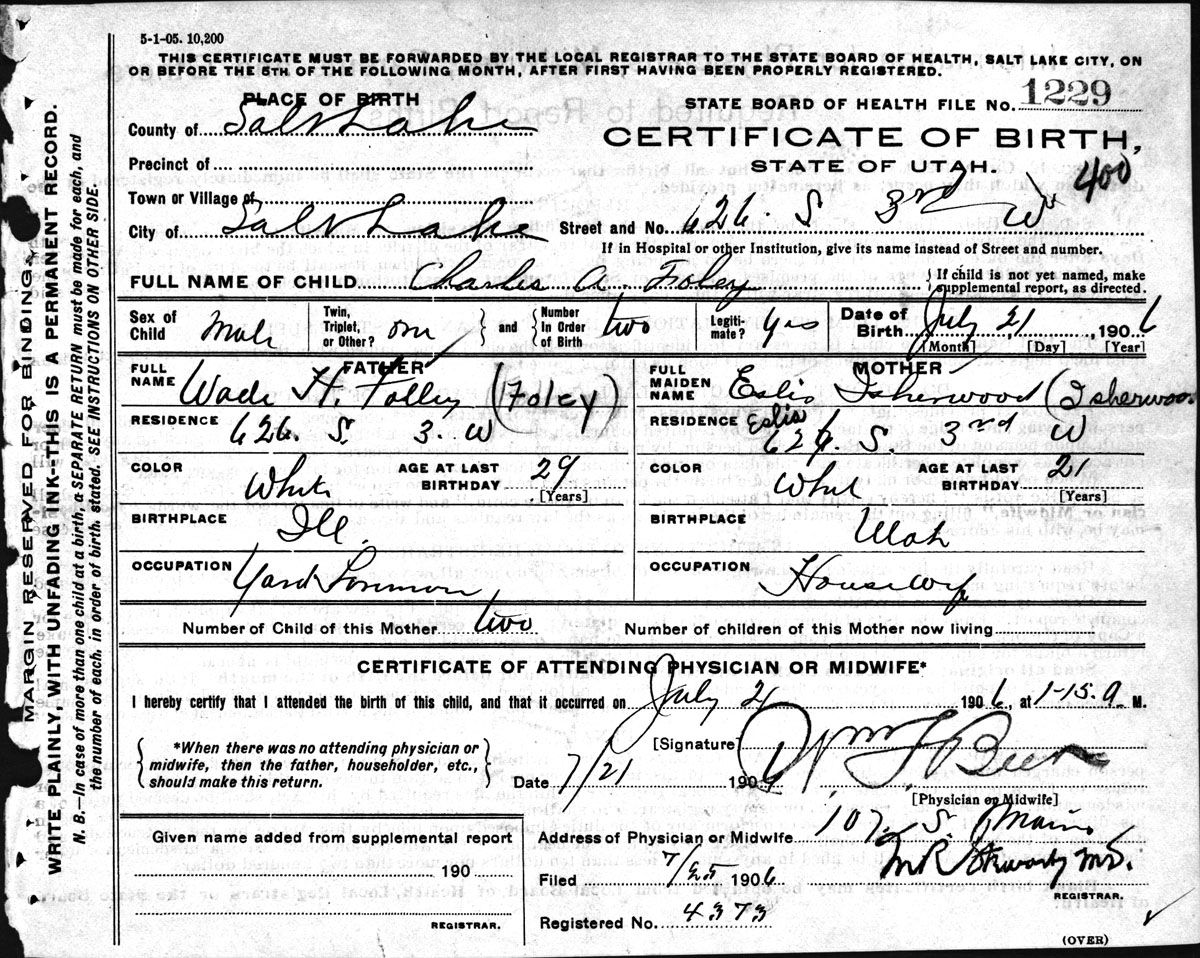 5-1-05. 10,200
THIS CERTIFICATE MUST BE FORWARDED BY THE LOCAL REGISTRAR TO THE STATE BOARD OF HEALTH, SALT LAKE CITY, ON
OR BEFORE THE 5TH OF THE FOLLOWING MONTH, AFTER FIRST HAVING BEEN PROPERLY REGISTERED.
PLACE OF BIRTH
STATE BOARD OF HEALTH FILE No. 1229
County of Salt Lake
CERTIFICATE OF BIRTH,
STATE OF UTAH.
400
Precinct of
Town or Village of
City of Salt Lake Street and No. 626. S 3rd W
If in Hospital or other Institution, give its name instead of Street and number.
FULL NAME OF CHILD Charles A. Foley { If child is not yet named, make supplemental report, as directed.
Sex of Child Male Twin, Triplet, or Other? one } and { Number In Order of Birth two Legitimate? Yes Date of Birth July 21, 1906
[Month] [Day] [Year]
FATHER
MOTHER
FULL NAME Wade H. Folley (Foley)
FULL MAIDEN NAME Eslis Isherwood (Isherwoo
Eslis
RESIDENCE 626. S. 3. W
RESIDENCE 626. S. 3rd W
COLOR White AGE AT LAST BIRTHDAY 29 [Years]
COLOR White AGE AT LAST BIRTHDAY 21 [Years]
BIRTHPLACE Ill.
BIRTHPLACE Utah
OCCUPATION Yard
OCCUPATION Housewife
Number of Child of this Mother two Number of children of this Mother now living
CERTIFICATE OF ATTENDING PHYSICIAN OR MIDWIFE*
I hereby certify that I attended the birth of this child, and that it occurred on July 21 1906, at 1-15 a M.
{ *When there was no attending physician or midwife, then the father, householder, etc., should make this return. }
[Signature] Wm F Beer
Date 7/21 1906
[Physician or Midwife]
Given name added from supplemental report
190
REGISTRAR.
Address of Physician or Midwife 107. S. Main
Filed 7/25 1906 M R Stewart M.D.
REGISTRAR.
Registered No. 4373
(OVER)
MARGIN RESERVED FOR BINDING.
WRITE PLAINLY, WITH UNFADING INK--THIS IS A PERMANENT RECORD.
N. B.—In case of more than one child at a birth, a SEPARATE RETURN must be made for each, and
the number of each, in order of birth, stated. SEE INSTRUCTIONS ON OTHER SIDE.